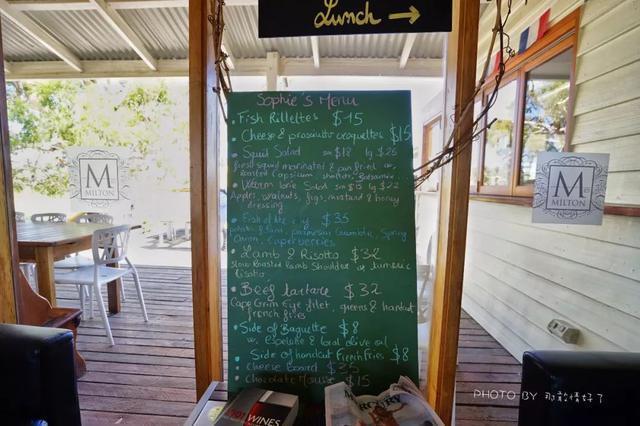 Lunch →
Sophie's Menu
Fish Rillettes $15
Cheese & prosciutto croquettes $15
Squid Salad sm $18 lg $25
fresh squid marinated & pan fried w.
Roasted Capsicum, shallots, Balsamic
Warm loire Salad sm $15 lg $22
Apples, walnuts, figs, mustard & honey
dressing
Fish of the $35
potato & parmesan Crumble, Spring
Onion, Caperberries
Lamb & Risotto $32
Slow Roasted Lamb Shoulder w tumeric
Risotto
Beef tartare $32
Cape Grim Eye filet, greens & handcut
french fries
Side of Baguette $8
w. & local olive oil
Side of handcut French Fries $8
Cheese Board $25
Chocolate Mousse $15
M
MILTON
M
MILTON
WINES
PHOTO BY 那敢情好了